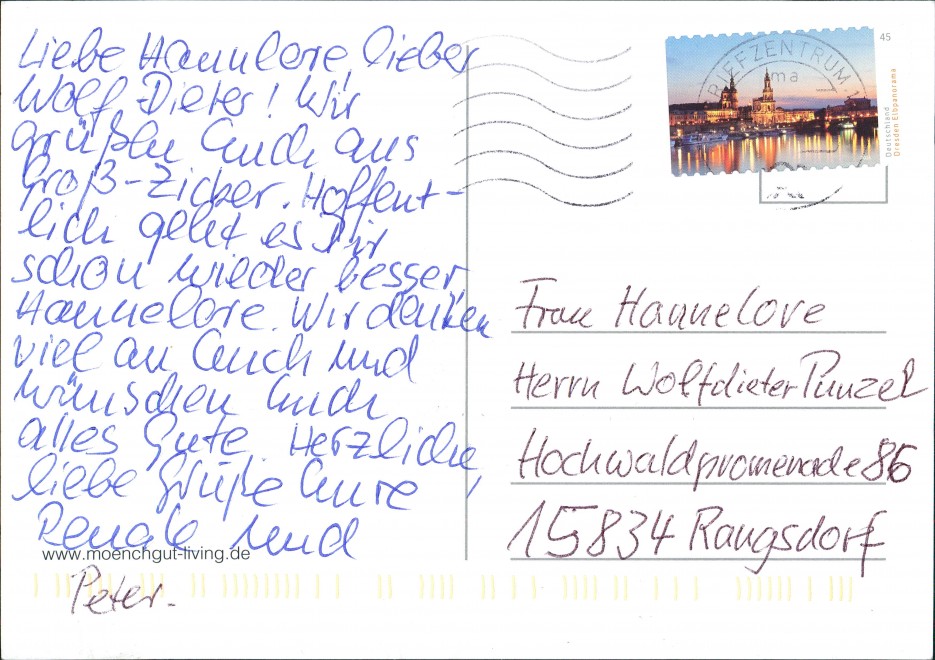 Liebe Hannelore lieber
Wolf Dieter! Wir
grüßen Euch aus
Groß-Zicker. Hoffent-
lich geht es Dir
schon wieder besser,
Hannelore. Wir denken
viel an Euch und
wünschen Euch
alles Gute. Herzliche,
liebe Grüße Eure
Renate und
www.moenchgut-living.de
Peter.
BRIEFZENTRUM 1
ma
45
Deutschland
Dresden Elbpanorama
Frau Hannelore
Herrn Wolfdieter Punzel
Hochwaldpromenade 86
15834 Rangsdorf